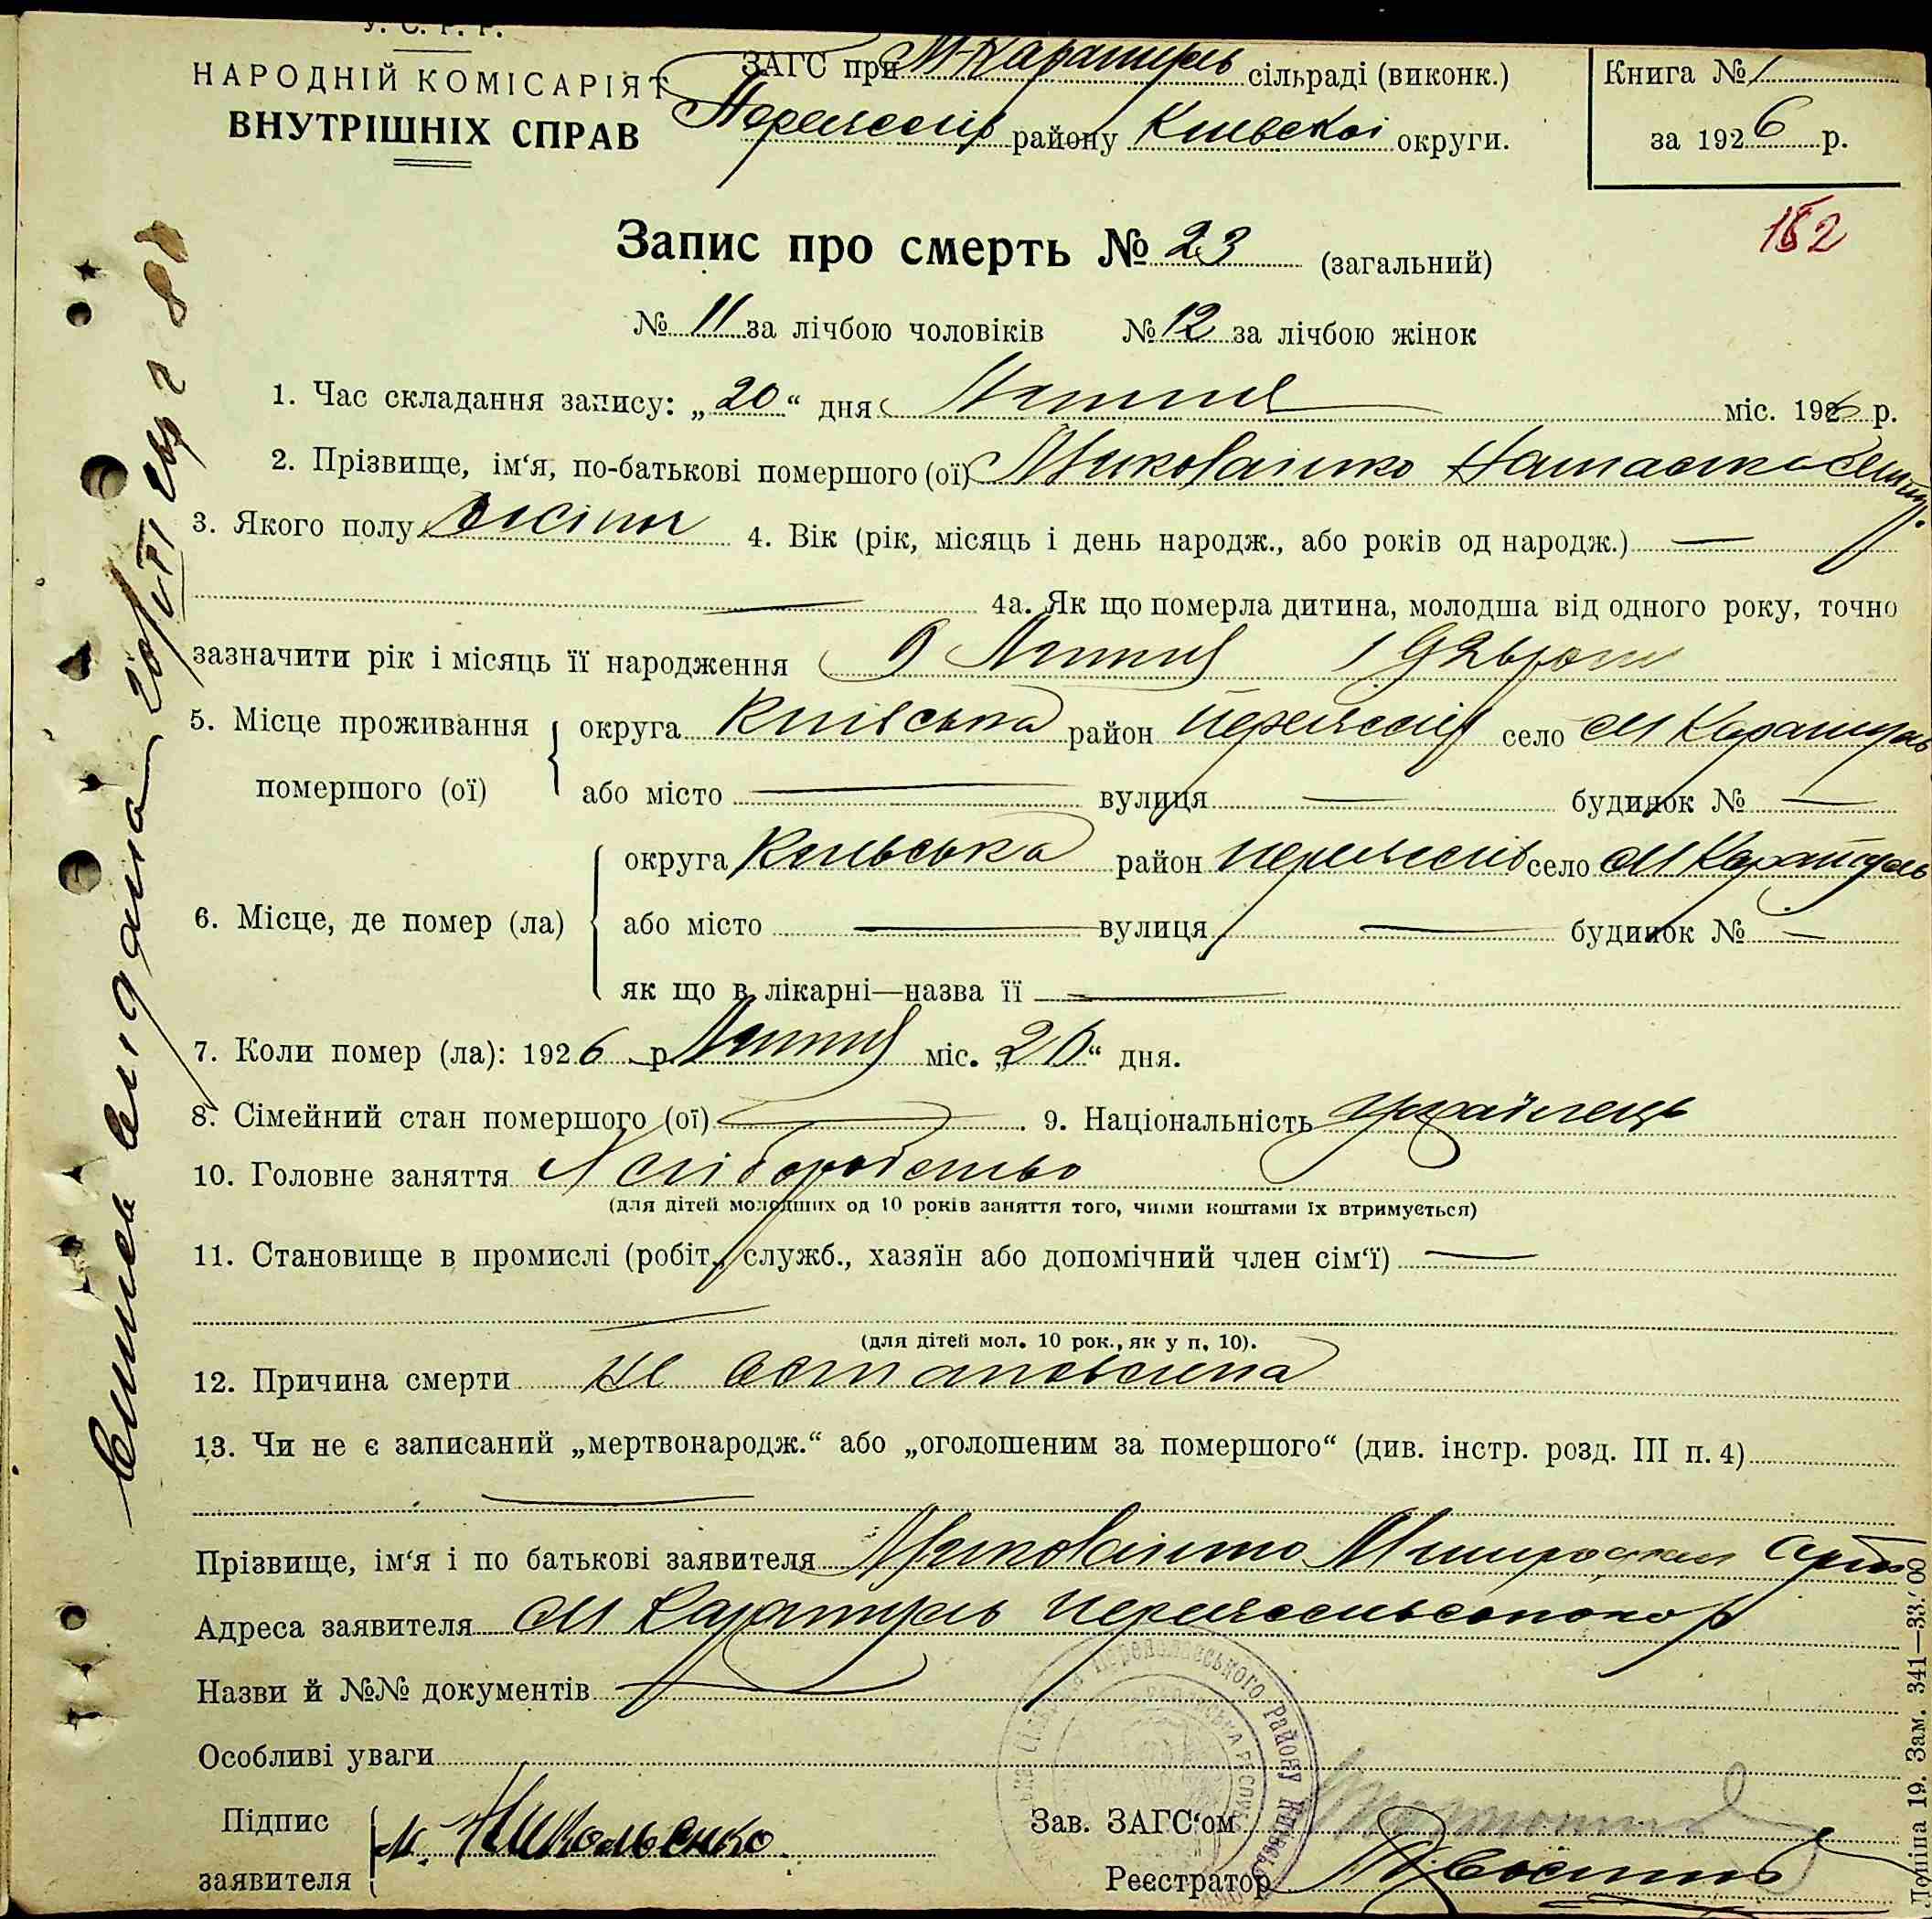 У. С. Р. Р.
НАРОДНІЙ КОМІСАРІЯТ
ВНУТРІШНІХ СПРАВ
ЗАГС при М-Каратуль сільраді (виконк.)
району Киевскоі округи.
Книга № 1
за 1926 р.
152
Запис про смерть № 23 (загальний)
№ 11 за лічбою чоловіків № 12 за лічбою жінок
1. Час складання запису: „20“ дня Липня міс. 1926 р.
2. Прізвище, ім‘я, по-батькові помершого (ої) Миколаінко
3. Якого полу жіноч 4. Вік (рік, місяць і день народж., або років од народж.) —
— 4а. Як що померла дитина, молодша від одного року, точно
зазначити рік і місяць її народження 9 Липня 1926 року
5. Місце проживання помершого (ої)
округа Київська район Переяслів село М Каратуль
або місто — вулиця — будинок № —
6. Місце, де помер (ла)
округа Киівська район Переяслів село М Каратуль
або місто — вулиця — будинок № —
як що в лікарні—назва її —
7. Коли помер (ла): 1926 р. Липня міс. „20“ дня.
8. Сімейний стан помершого (ої) — . 9. Національність Украінець
10. Головне заняття Хліборобство
(для дітей молодших од 10 років заняття того, чиїми коштами їх втримується)
11. Становище в промислі (робіт., служб., хазяїн або допомічний член сім‘ї) —
—
(для дітей мол. 10 рок., як у п. 10).
12. Причина смерти не встановлена
13. Чи не є записаний „мертвонародж.“ або „оголошеним за помершого“ (див. інстр. розд. III п. 4)
—
Прізвище, ім‘я і по батькові заявителя Миколаінко
Адреса заявителя М Каратуль
Назви й №№ документів —
Особливі уваги
Підпис заявителя М. Николенко
Зав. ЗАГС‘ом
Реєстратор
Переяславського району
20/VII 26 р
Зам. 341—33.